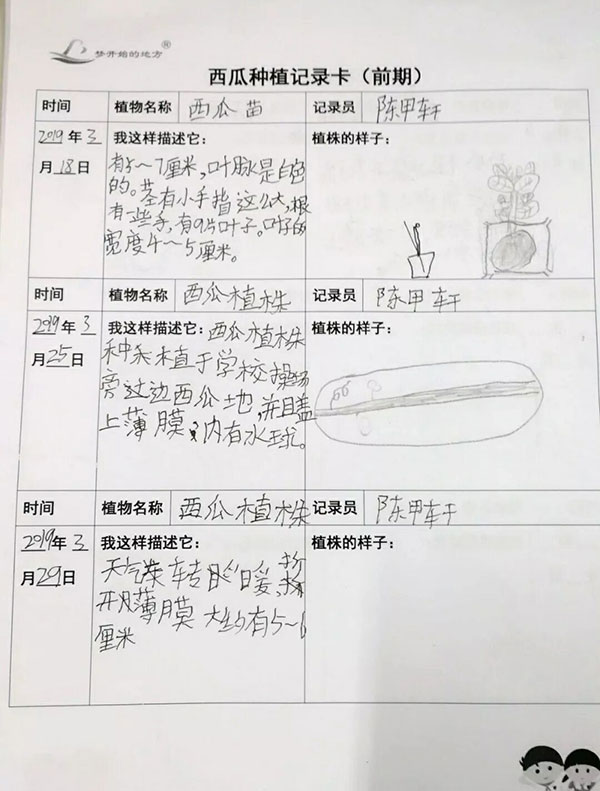 梦开始的地方®
西瓜种植记录卡（前期）
时间 植物名称 西瓜苗 记录员 陈甲轩
2019年3月18日
我这样描述它:
有5~7厘米,叶脉是白色
的。茎有小手指这么大,根
有些多,有9片叶子。叶子的
宽度4~5厘米。
植株的样子:
时间 植物名称 西瓜植株 记录员 陈甲轩
2019年3月25日
我这样描述它: 西瓜植株
种植于学校操场
旁边西瓜地,并且盖
上薄膜,内有水珠。
植株的样子:
时间 植物名称 西瓜植株 记录员 陈甲轩
2019年3月29日
我这样描述它:
天气转暖,
开薄膜 大约有5~6
厘米
植株的样子: